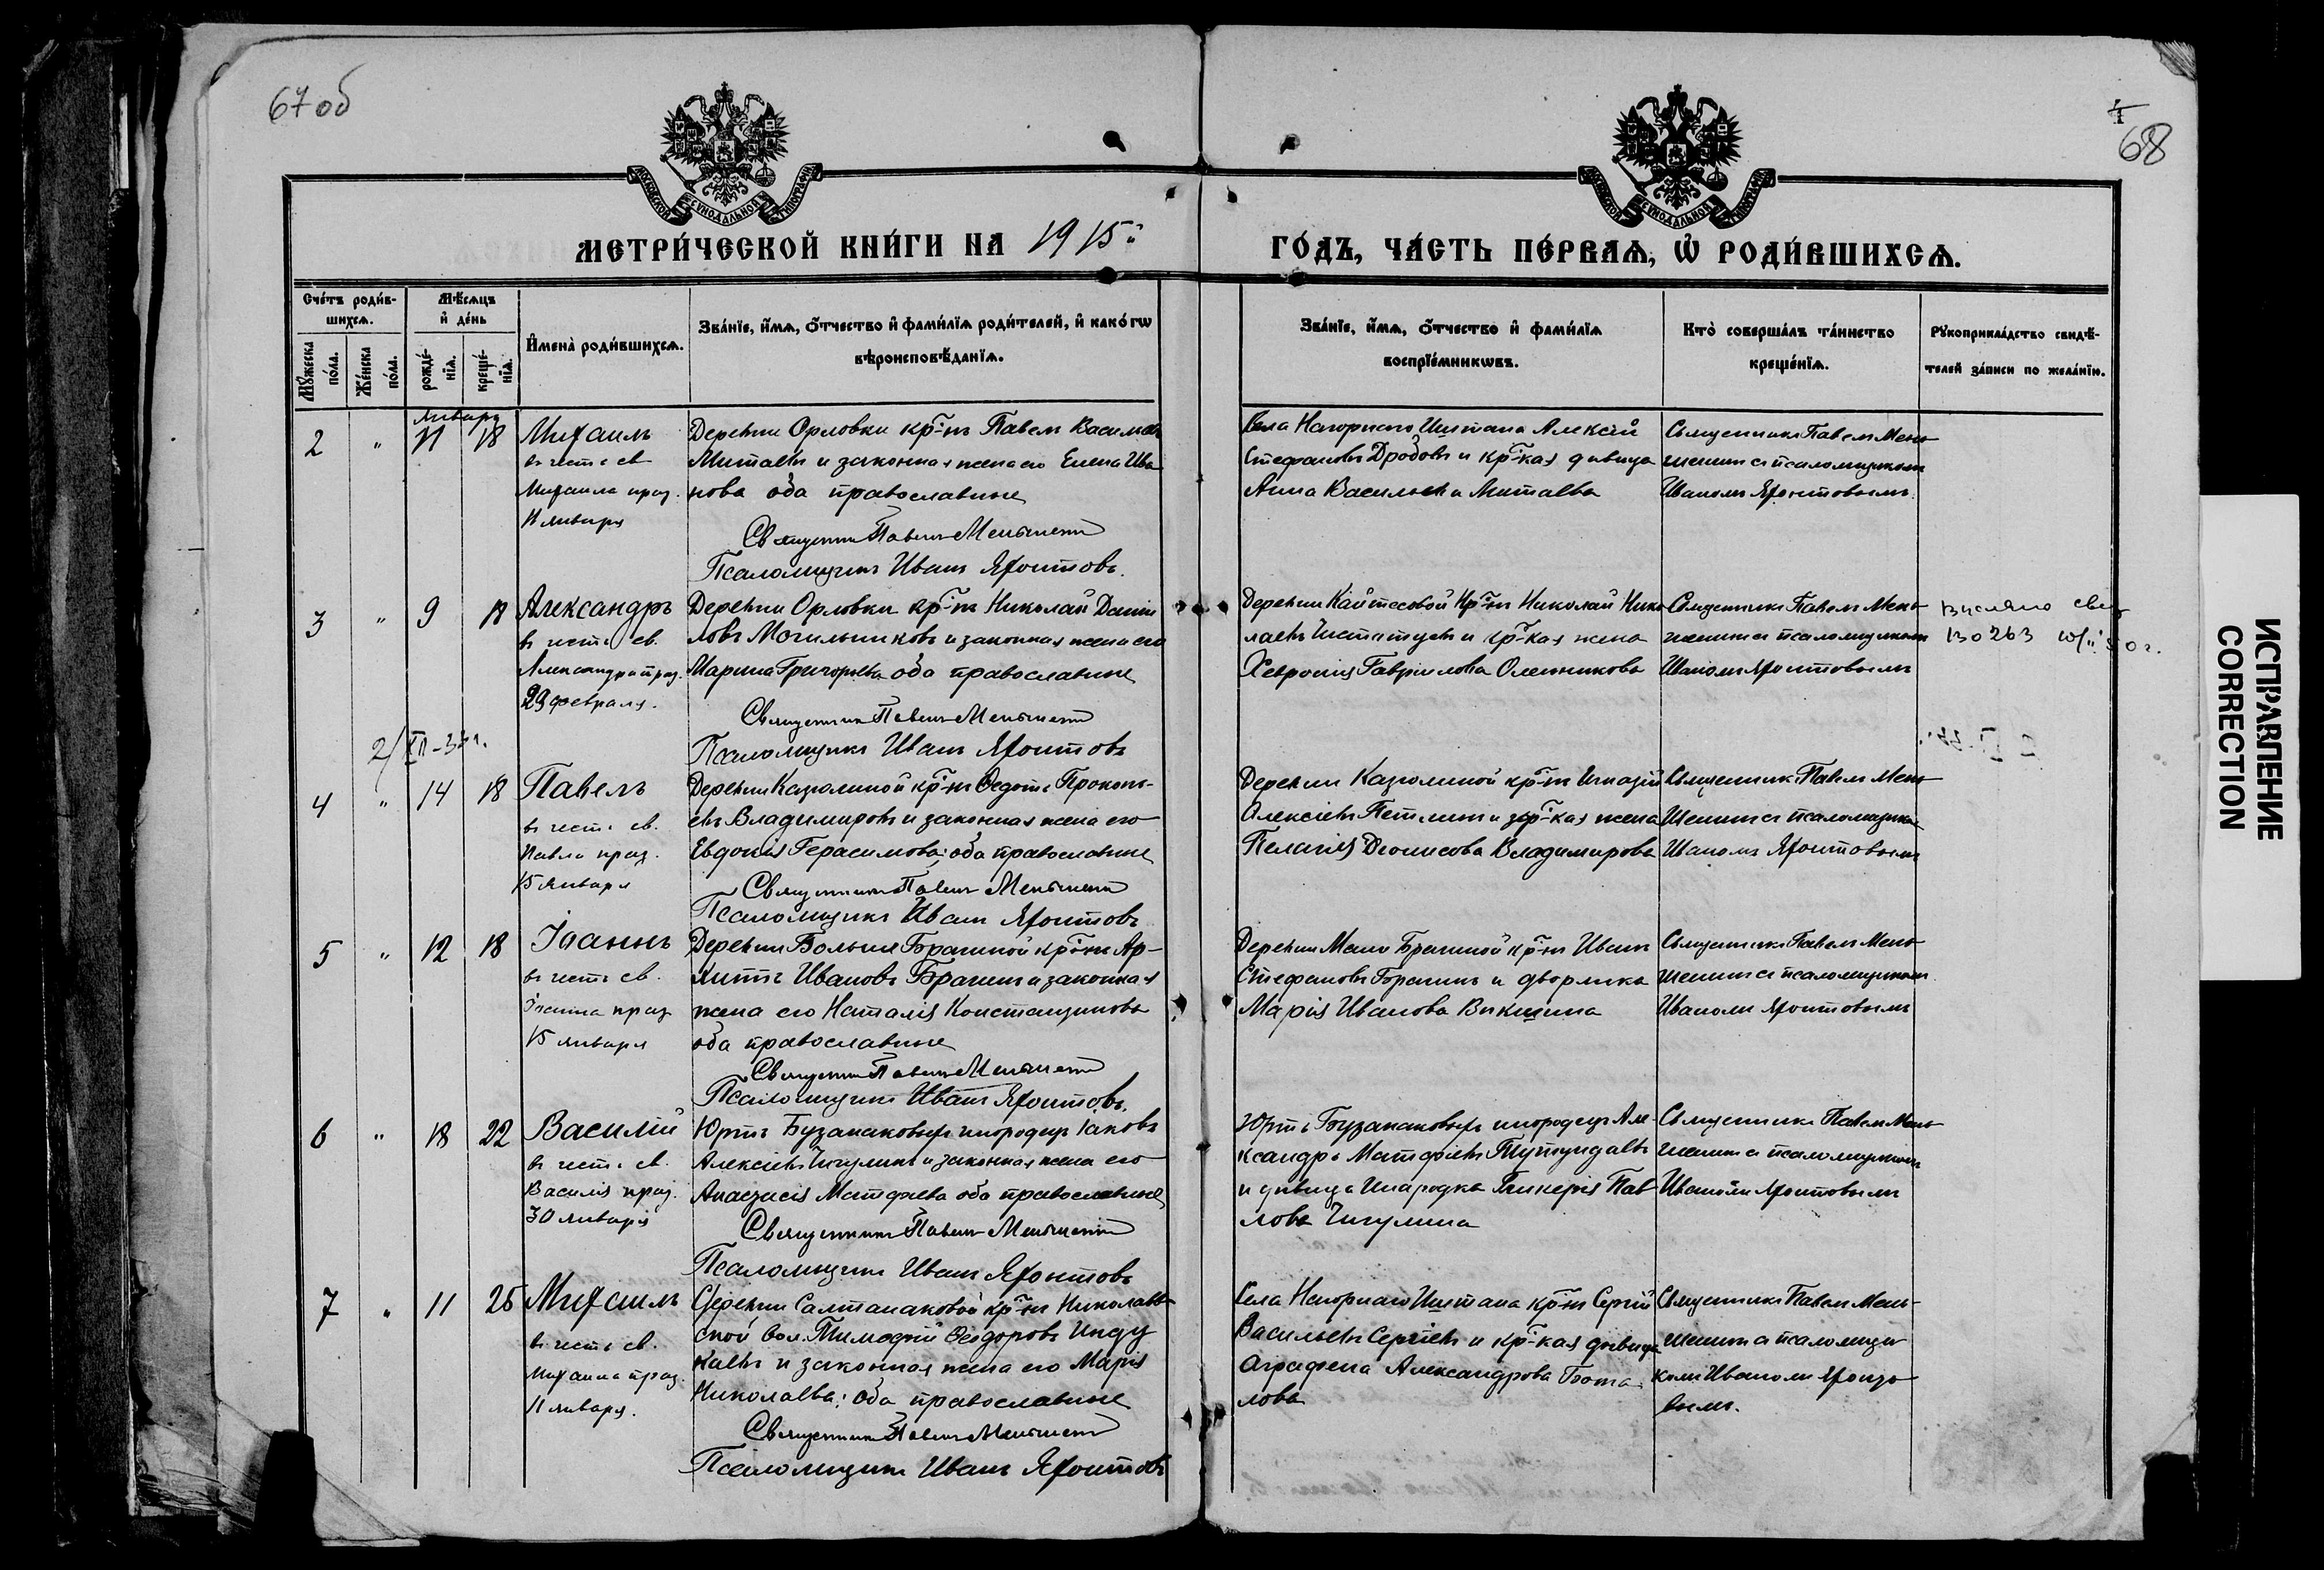 67 об
68
МОСКОВСКОЙ СѴНОДАЛЬНОЙ ТИПОГРАФІИ
МОСКОВСКОЙ СѴНОДАЛЬНОЙ ТИПОГРАФІИ
МЕТРИ́ЧЕСКОЙ КНИ́ГИ НА 1915
ГО́ДЪ, ЧА́СТЬ ПЕ́РВАѦ, Ѡ҆ РОДИ́ВШИХСѦ.
Сче́тъ роди́в-
шихсѧ.
Мꙋ́жеска по́ла.
Же́нска по́ла.
Мѣ́сѧцъ
и҆ де́нь
рожде́-нїѧ.
креще́-нїѧ.
И҆мена̀ роди́вшихсѧ.
Зва́нїе, и҆́мѧ, ѻ҆́тчество и҆ фами́лїѧ роди́телей, и҆ како́гѡ
вѣроисповѣ́данїѧ.
Зва́нїе, и҆́мѧ, ѻ҆́тчество и҆ фами́лїѧ
воспрїе́мникѡвъ.
Кто̀ соверша́лъ та́инство
креще́нїѧ.
Рꙋкоприкла́дство свидѣ́-
телей за́писи по жела́нїю.
Января
2 " 11 18
Михаилъ
въ честь св.
Михаила праз.
11 января
Деревни Орловки кр-нъ Павелъ Васильевъ
и законная жена его Елена Ива
нова оба православные
Священникъ Павелъ Меньшенин
Псаломщикъ Иванъ Яхонтовъ.
Села Нагорнаго Иштана Алексѣй
Стефановъ Дробовъ и кр-кая дѣвица
Анна Васильева
Священникъ Павелъ Мень
шенинъ съ псаломщикомъ
Иваномъ Яхонтовымъ.
3 " 9 18
Александръ
въ честь св.
Александра праз.
23 февраля.
Деревни Орловки кр-нъ Николай Дани
ловъ Могильниковъ и законная жена его
Марина Григорьева оба православные
Священникъ Павелъ Меньшенин
Псаломщикъ Иванъ Яхонтовъ
Деревни Кайтесовой Кр-нъ Николай Нико
лаевъ и кр-кая жена
Хевронія Гавріилова Оленникова
Священникъ Павелъ Мень
шенинъ съ псаломщикомъ
Иваномъ Яхонтовымъ
выслано свид
130263
4 " 14 18
Павелъ
въ честь св.
Павла праз.
15 января
Деревни Казюлиной кр-нъ Ѳедотъ Прокопь-
евъ Владимировъ и законная жена его
Евдокія Герасимова; оба православные
Священникъ Павелъ Меньшенин
Псаломщикъ Иванъ Яхонтовъ
Деревни Казюлиной кр-нъ Игнатій
Алексіевъ Петлинъ и кр-кая жена
Пелагія Деонисова Владимирова
Священникъ Павелъ Мень
шенинъ съ псаломщикомъ
Иваномъ Яхонтовымъ
5 " 12 18
Іоаннъ
въ честь св.
Іоанна праз.
15 января
Деревни Больше Брагиной кр-нъ Ар-
хиппъ Ивановъ Брагинъ и законная
жена его Наталія Константинова
оба православные
Священникъ Павелъ Меньшенин
Псаломщикъ Иванъ Яхонтовъ.
Деревни Мало Брагиной кр-нъ Иванъ
Стефановъ Брагинъ и
Марія Иванова Викшина
Священникъ Павелъ Мень
шенинъ съ псаломщикомъ
Иваномъ Яхонтовымъ
6 " 18 22
Василій
въ честь св.
Василія праз.
30 января
Юртъ Бузанаковыхъ инородецъ Іаковъ
Алексіевъ Чигулинъ и законная жена его
Анастасія Матфеева оба православные
Священникъ Павелъ Меньшенин
Псаломщикъ Иванъ Яхонтовъ
Юртъ Бузанаковыхъ инородецъ Але
ксандръ Матфеевъ
и дѣвица Инародка Гликерія Пав
лова Чигулина
Священникъ Павелъ Мень
шенинъ съ псаломщикомъ
Иваномъ Яхонтовымъ
7 " 11 25
Михаилъ
въ честь св.
Михаила праз.
11 января.
Деревни Салтанаковой кр-нъ Николаев
ской вол. Тимофей Ѳеодоровъ Инду
каевъ и законная жена его Марія
Николаева; оба православные
Священникъ Павелъ Меньшенин
Псаломщикъ Иванъ Яхонтовъ
Села Нагорнаго Иштана кр-нъ Сергій
Васильевъ Сергіевъ и кр-кая дѣвица
Аграфена Александрова
лова
Священникъ Павелъ Мень-
шенинъ съ псаломщи
комъ Иваномъ Яхонто
вымъ.
ИСПРАВЛЕНИЕ
CORRECTION